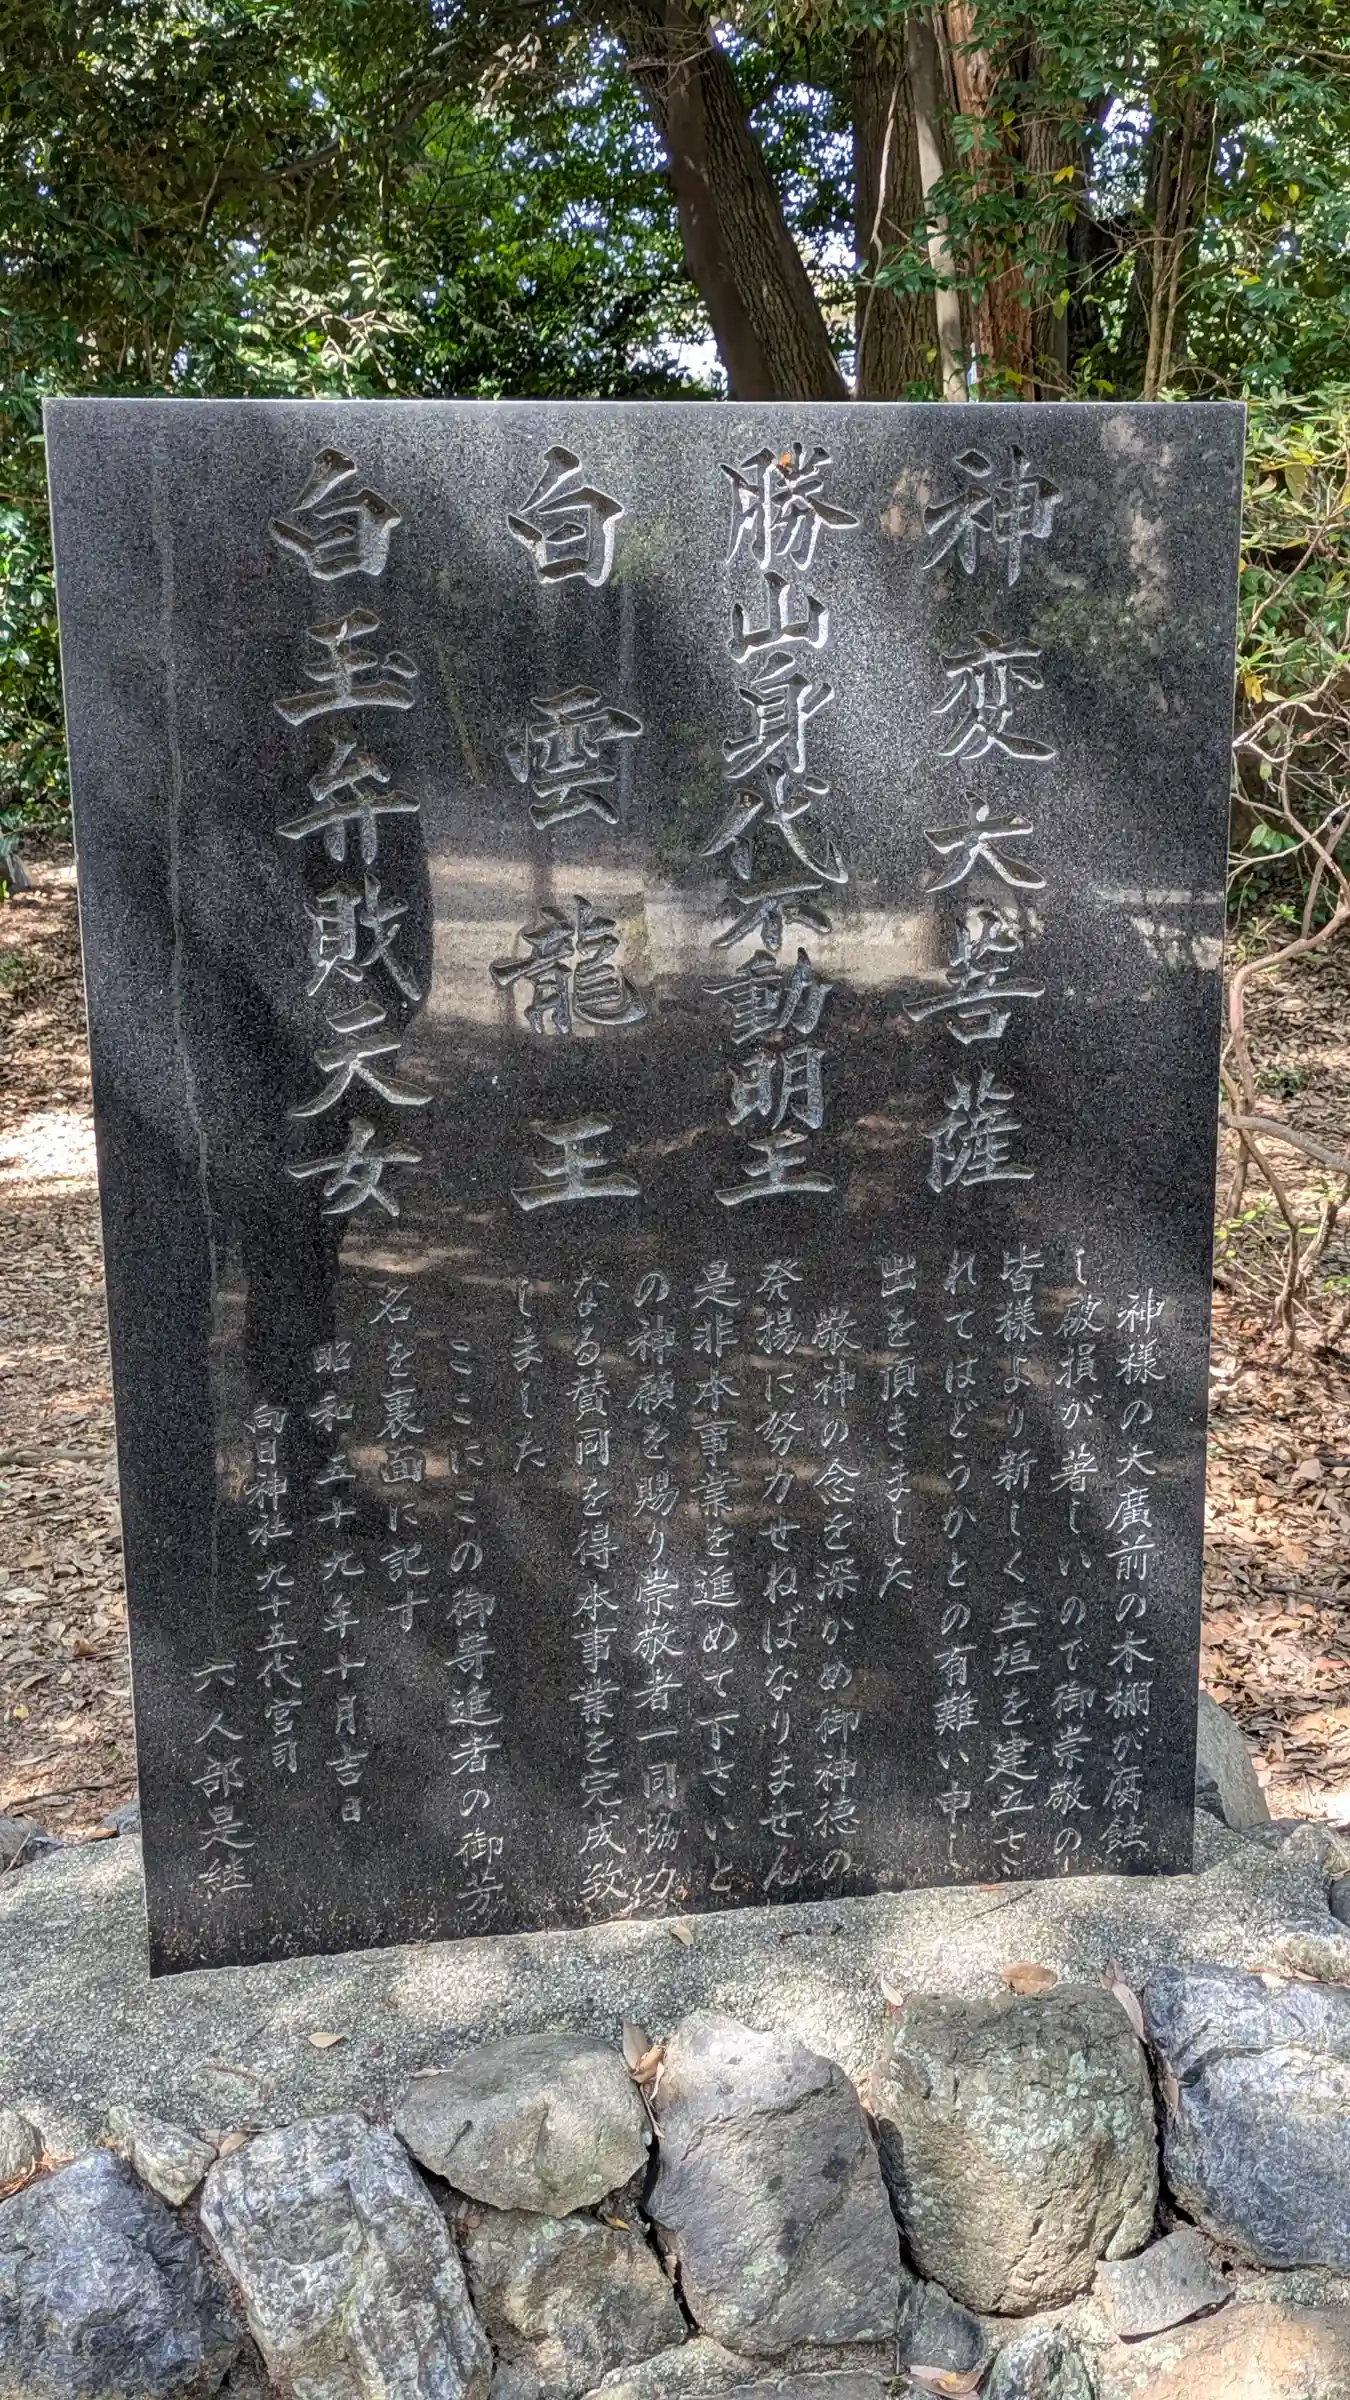 神変大菩薩
勝山身代不動明王
白雲龍王
白玉弁財天女
神様の大廣前の木柵が腐蝕
し破損が著しいので御崇敬の
皆様より新しく玉垣を建立さ
れてはどうかとの有難い申し
出を頂きました
敬神の念を深かめ御神徳の
発揚に努力せねばなりません
是非本事業を進めて下さいと
の神願を賜り崇敬者一同協力
なる賛同を得本事業を完成致
しました
ここにこの御寄進者の御芳
名を裏面に記す
昭和五十九年十月吉日
向日神社九十五代宮司
六人部是継